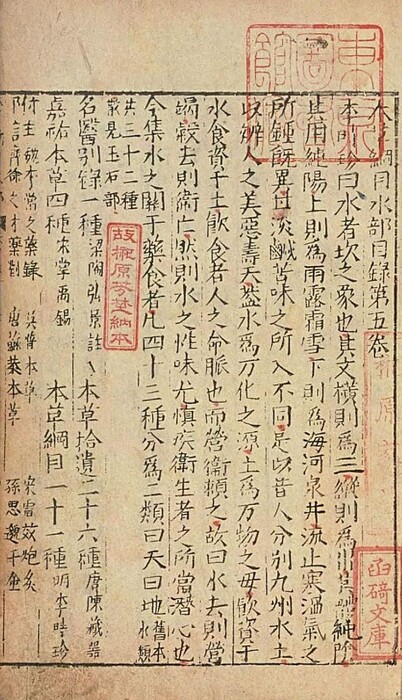 東京圖書館
本草綱目水部目錄第五卷
李時珍曰水者坎之象也其文橫則為三縱則為川其體純陰
其用純陽上則為雨露霜雪下則為海河泉井流止寒溫氣之
所鍾既異甘淡鹹苦味之所入不同是以昔人分別九州水土
以辨人之美惡壽夭盖水為万化之源土為万物之母飲資于
水食資于土飲食者人之命脉也而營衞賴之故曰水去則營
竭穀去則衞亡然則水之性味尤慎疾衞生者之所當潛心也
今集水之關于藥食者凡四十三種分為二類曰天曰地舊本水類
共三十二種散見玉石部
名醫別錄一種梁陶弘景註 本草拾遺二十六種唐陳藏器
嘉祐本草四種宋掌禹錫 本草綱目一十一種明李時珍
附註魏李當之藥錄 吳普本草 宋雷斅炮炙
齊徐之才藥對 唐蘇恭本草 孫思邈千金
故榊原芳埜納本
函碕文庫